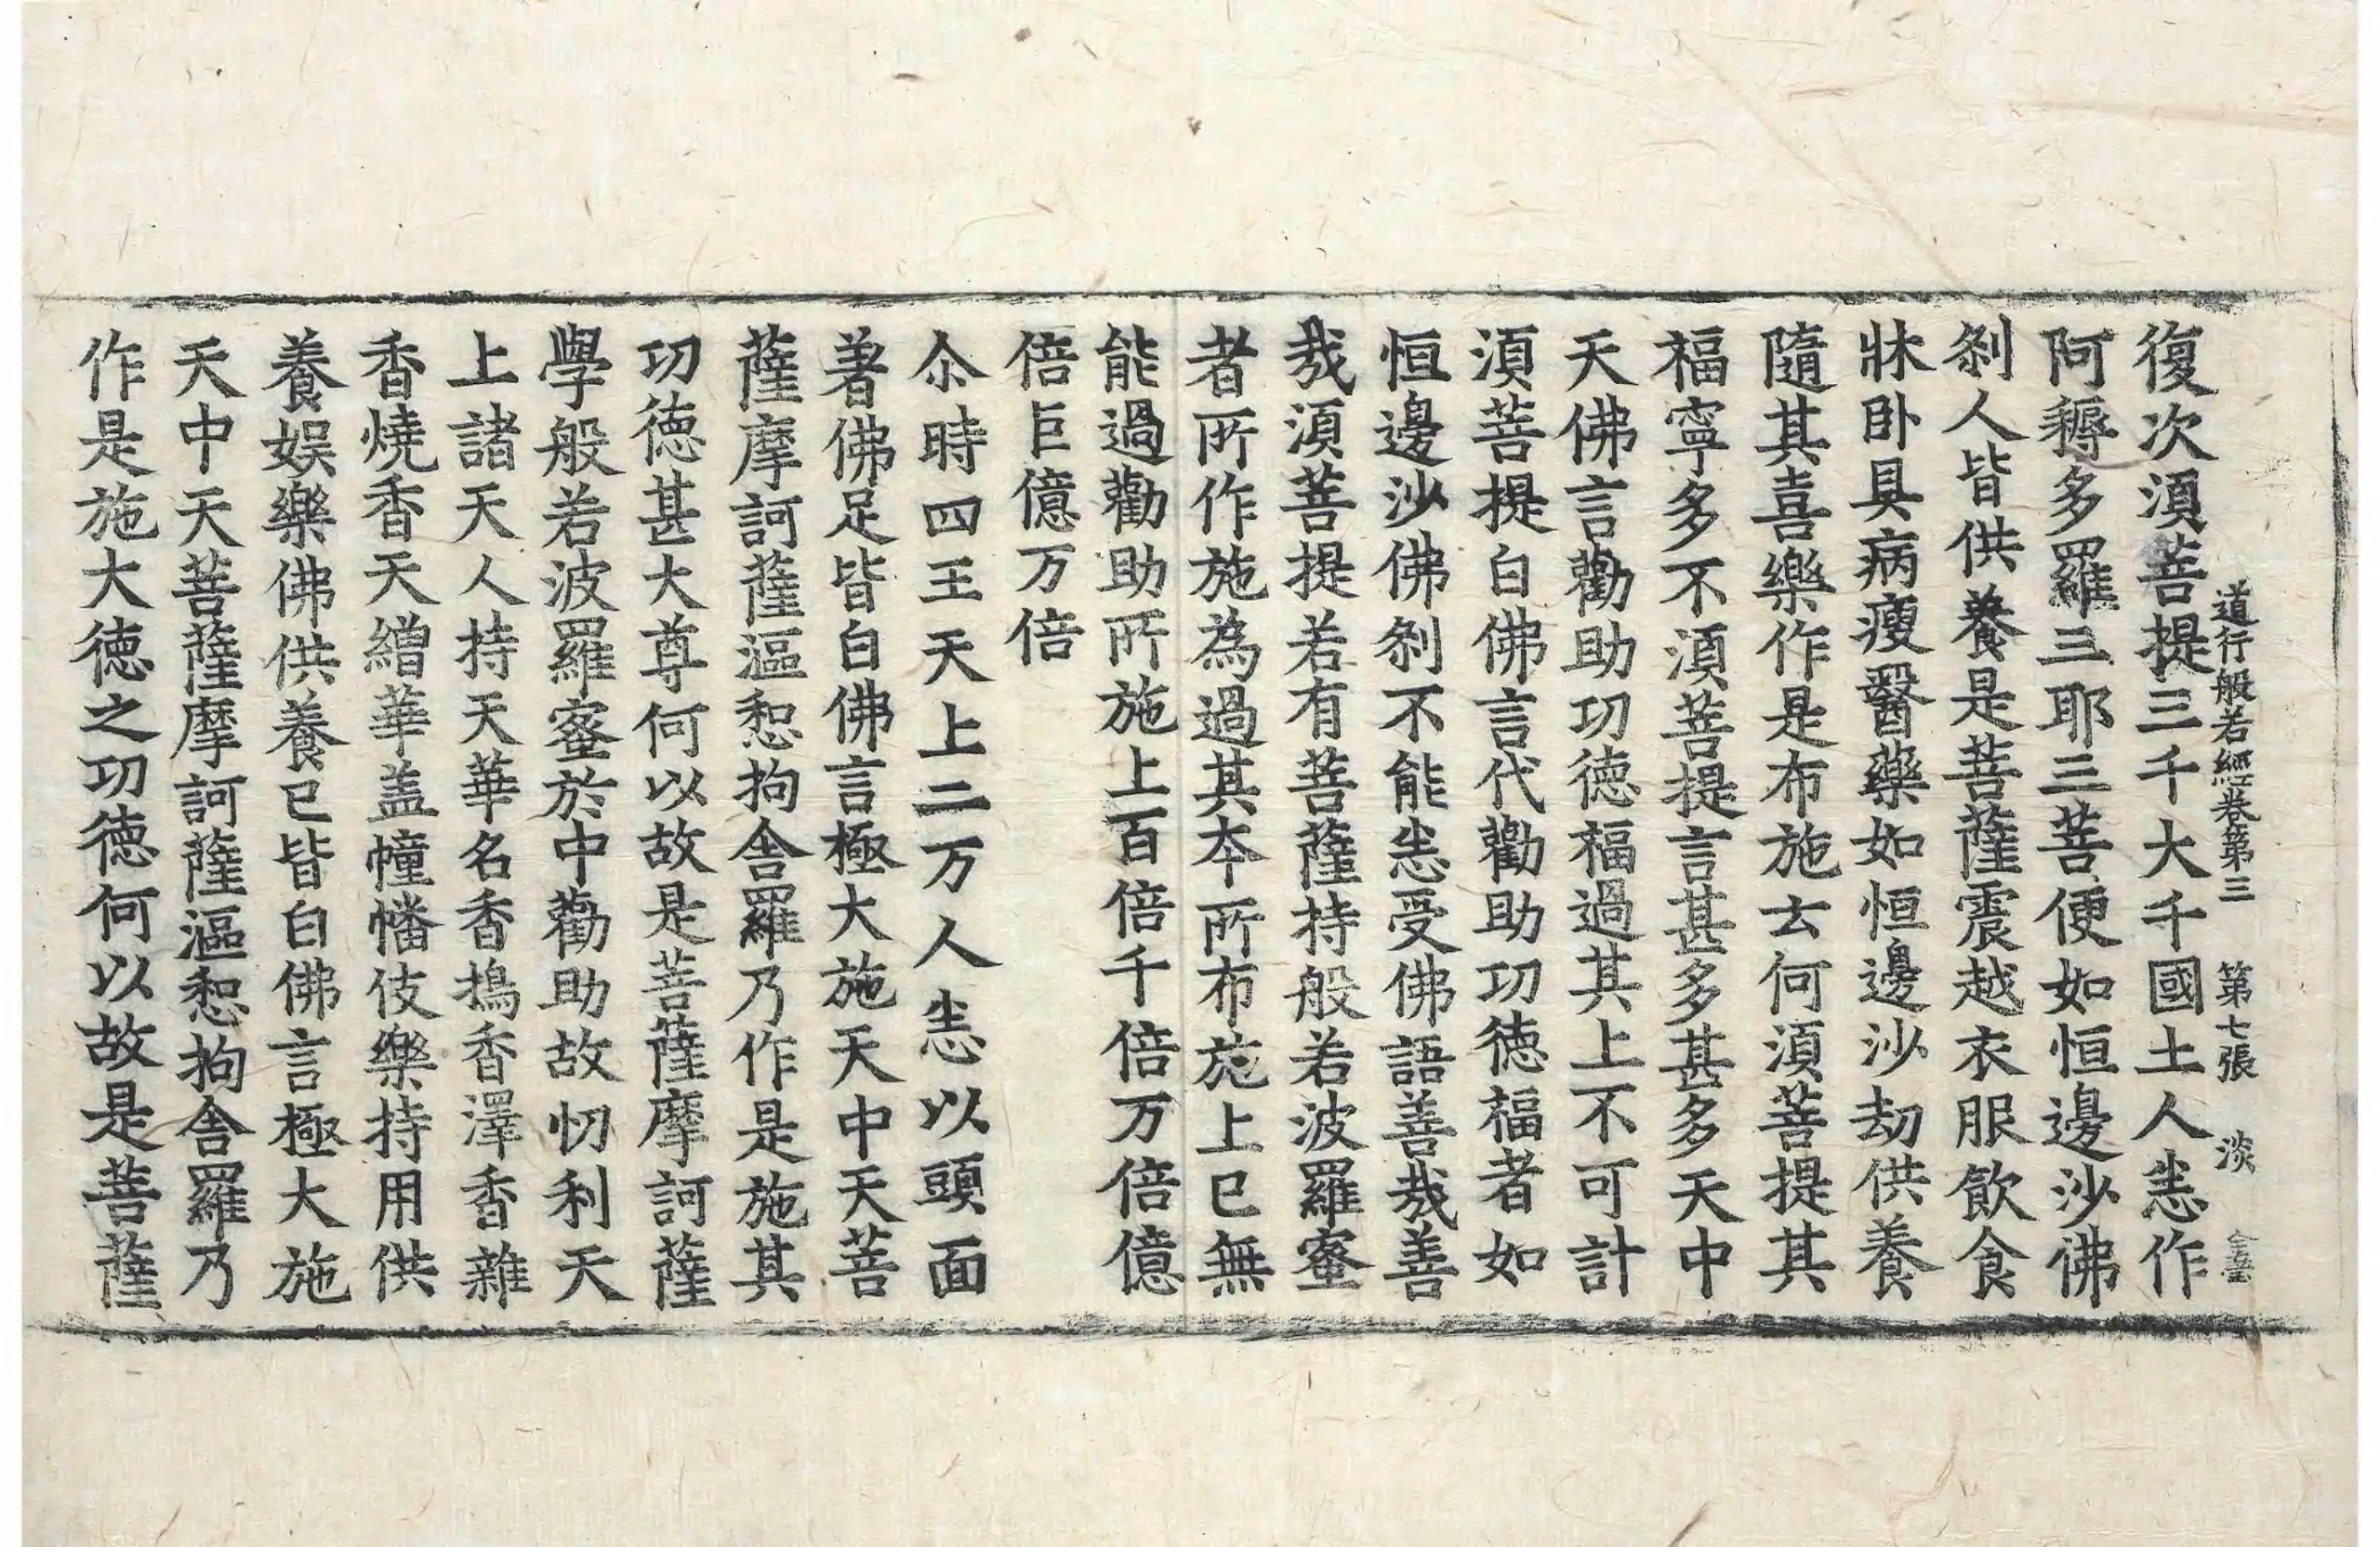 道行般若經卷第三 第七張 淡
復次須菩提三千大千國土人悉作
阿耨多羅三耶三菩便如恒邊沙佛
刹人皆供養是菩薩震越衣服飲食
牀卧具病瘦醫藥如恒邊沙劫供養
隨其喜樂作是布施云何須菩提其
福寧多不須菩提言甚多甚多天中
天佛言勸助功德福過其上不可計
須菩提白佛言代勸助功德福者如
恒邊沙佛刹不能悉受佛語善哉善
哉須菩提若有菩薩持般若波羅蜜
者所作施為過其本所布施上已無
能過勸助所施上百倍千倍万倍億
倍巨億万倍
尒時四王天上二万人悉以頭面
著佛足皆白佛言極大施天中天菩
薩摩訶薩漚惒拘舍羅乃作是施其
功德甚大尊何以故是菩薩摩訶薩
學般若波羅蜜於中勸助故忉利天
上諸天人持天華名香搗香澤香雜
香燒香天繒華盖幢幡伎樂持用供
養娛樂佛供養已皆白佛言極大施
天中天菩薩摩訶薩漚惒拘舍羅乃
作是施大德之功德何以故是菩薩